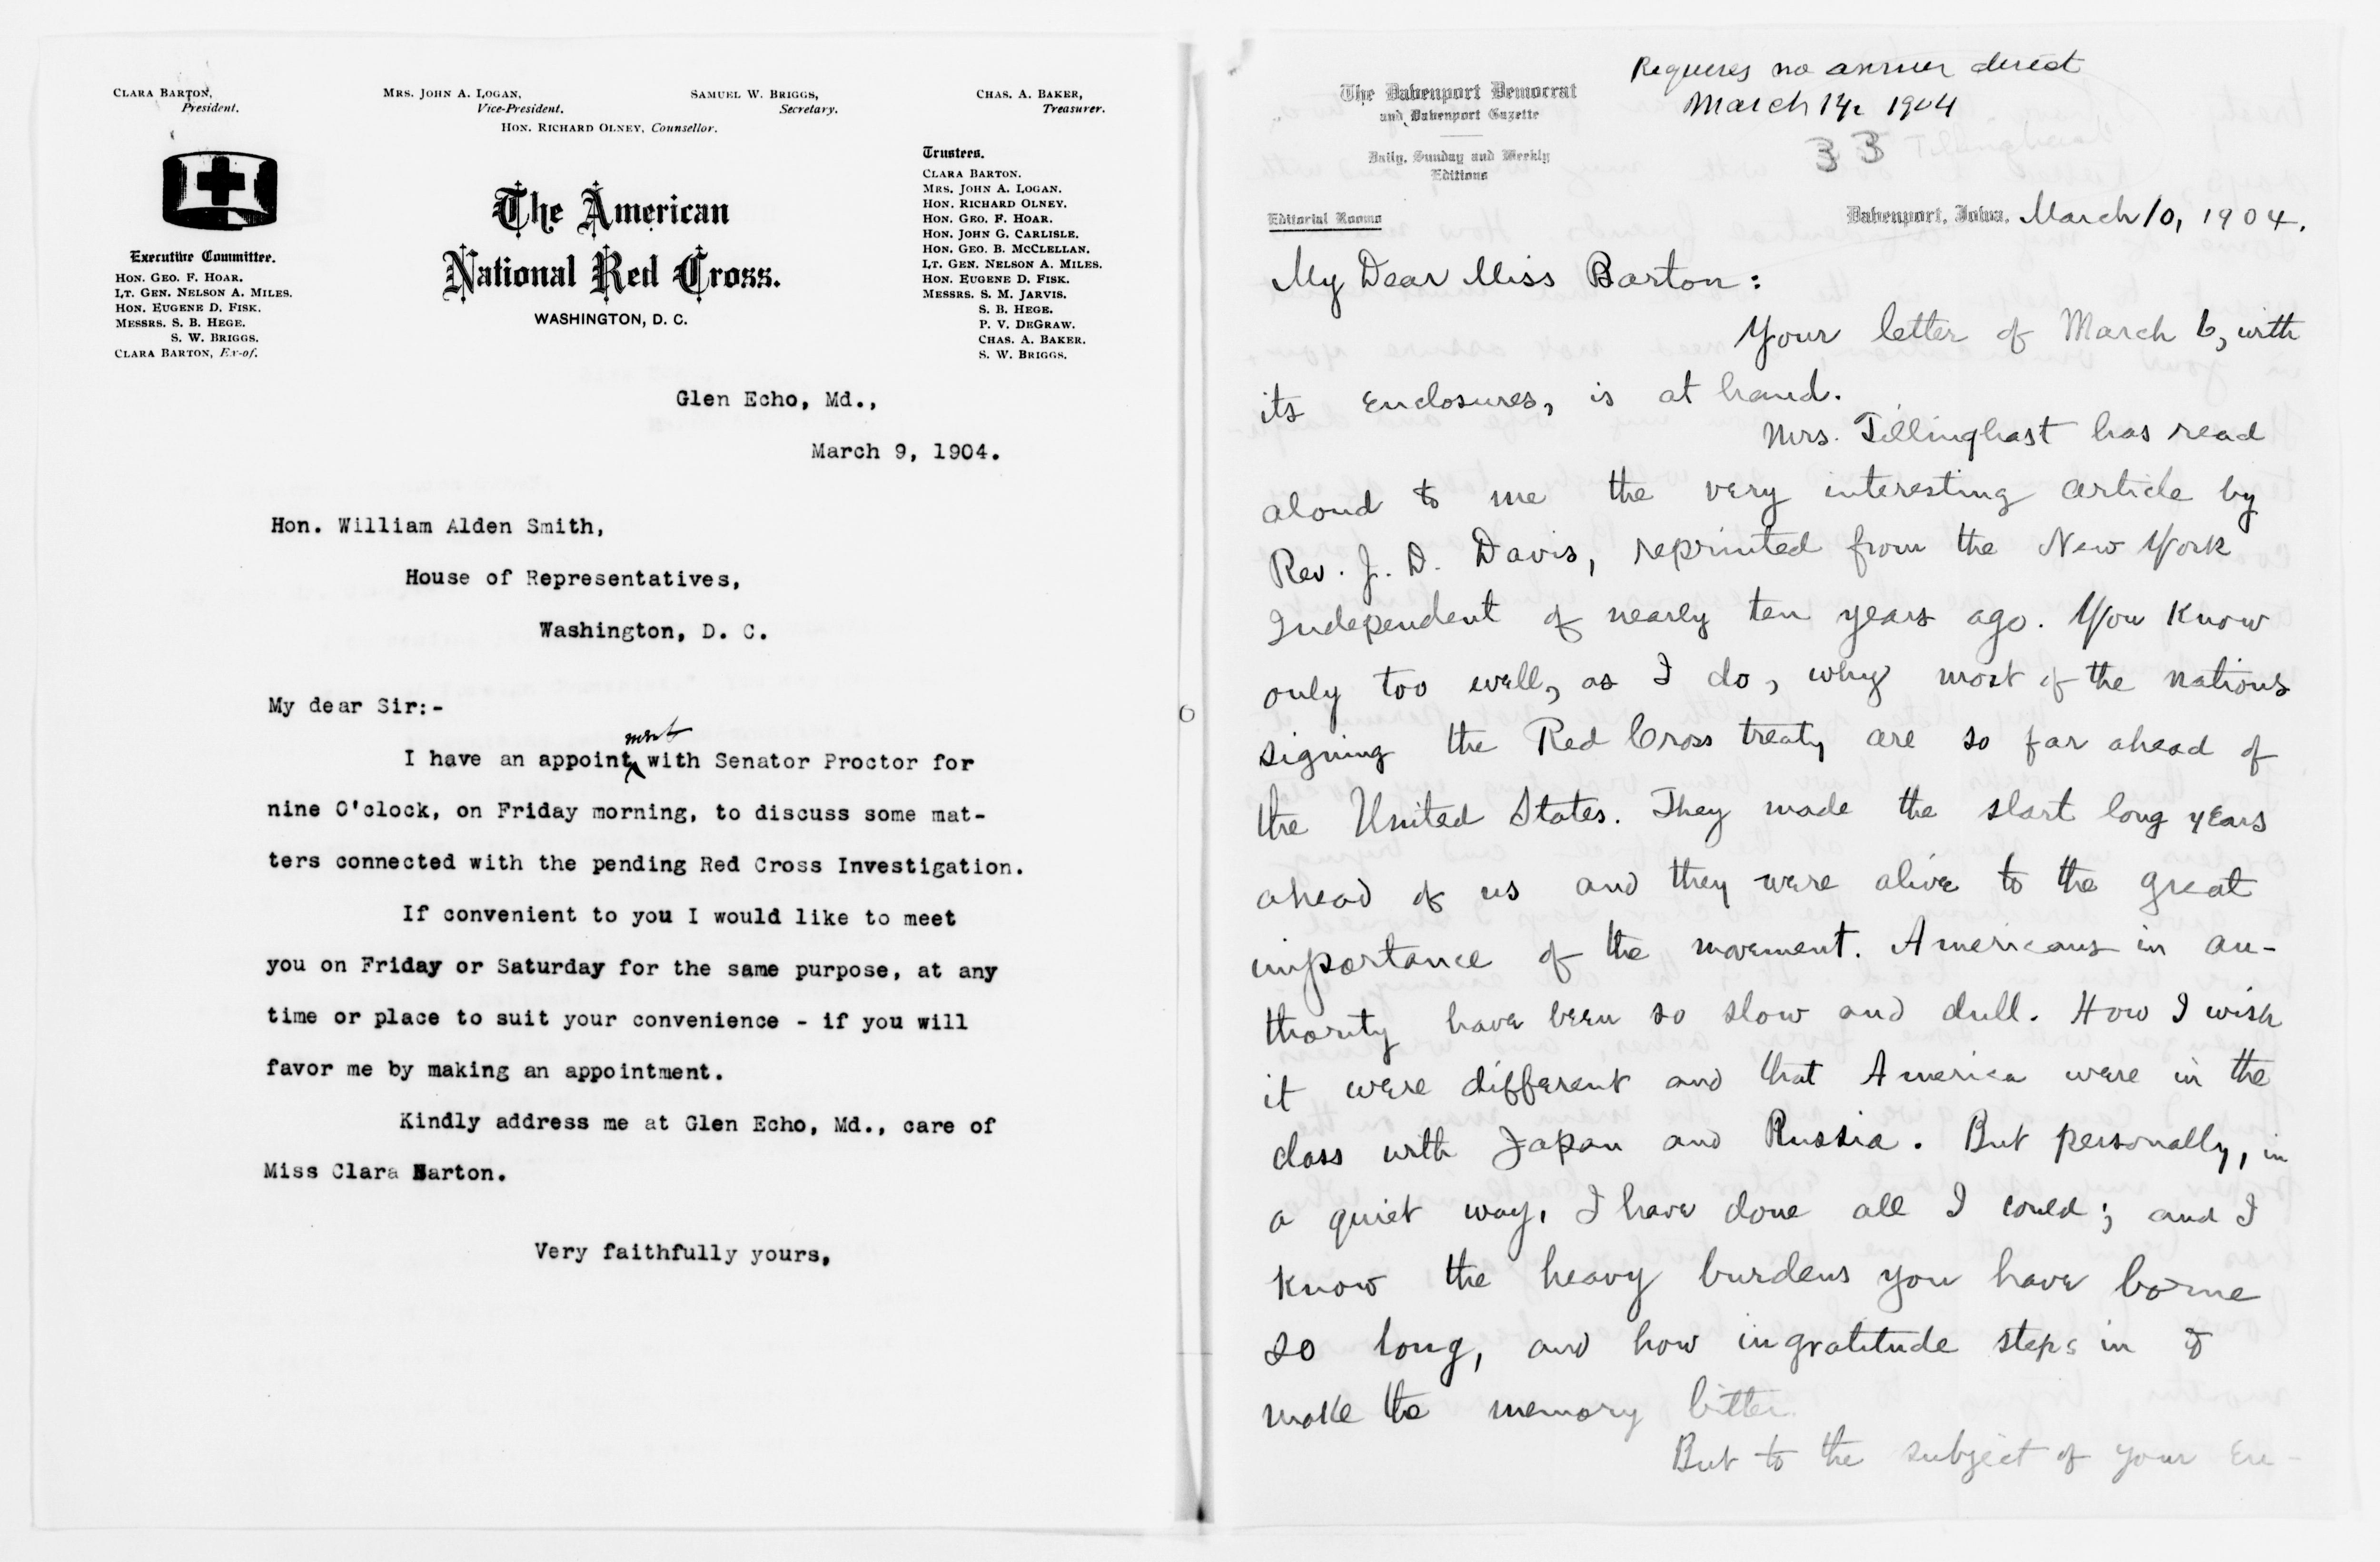 CLARA BARTON,
President.
MRS. JOHN A. LOGAN,
Vice-President.
SAMUEL W. BRIGGS,
Secretary.
CHAS. A. BAKER,
Treasurer.
HON. RICHARD OLNEY, Counsellor.
Executive Committee.
HON. GEO. F. HOAR.
LT. GEN. NELSON A. MILES.
HON. EUGENE D. FISK.
MESSRS. S. B. HEGE.
S. W. BRIGGS.
CLARA BARTON, Ex-of.
The American
National Red Cross.
WASHINGTON, D. C.
Trustees.
CLARA BARTON.
MRS. JOHN A. LOGAN.
HON. RICHARD OLNEY.
HON. GEO. F. HOAR.
HON. JOHN G. CARLISLE.
HON. GEO. B. MCCLELLAN.
LT. GEN. NELSON A. MILES.
HON. EUGENE D. FISK.
MESSRS. S. M. JARVIS.
S. B. HEGE.
P. V. DEGRAW.
CHAS. A. BAKER.
S. W. BRIGGS.
Glen Echo, Md.,
March 9, 1904.
Hon. William Alden Smith,
House of Representatives,
Washington, D. C.
My dear Sir:-
ment
I have an appoint with Senator Proctor for
nine O'clock, on Friday morning, to discuss some mat-
ters connected with the pending Red Cross Investigation.
If convenient to you I would like to meet
you on Friday or Saturday for the same purpose, at any
time or place to suit your convenience - if you will
favor me by making an appointment.
Kindly address me at Glen Echo, Md., care of
Miss Clara Barton.
Very faithfully yours,
Requires no answer direct
March 14, 1904
33
The Davenport Democrat
and Davenport Gazette
Daily, Sunday and Weekly
Editions
Editorial Rooms
Davenport, Iowa, March 10, 1904.
My Dear Miss Barton:
Your letter of March 6, with
its enclosures, is at hand.
Mrs. Tillinghast has read
aloud to me the very interesting article by
Rev. J. D. Davis, reprinted from the New York
Independent of nearly ten years ago. You know
only too well, as I do, why most of the nations
signing the Red Cross treaty are so far ahead of
the United States. They made the start long years
ahead of us and they were alive to the great
importance of the movement. Americans in au-
thority have been so slow and dull. How I wish
it were different and that America were in the
class with Japan and Russia. But personally, in
a quiet way, I have done all I could; and I
know the heavy burdens you have borne
so long, and how ingratitude steps in to
make the memory bitter.
But to the subject of your en-